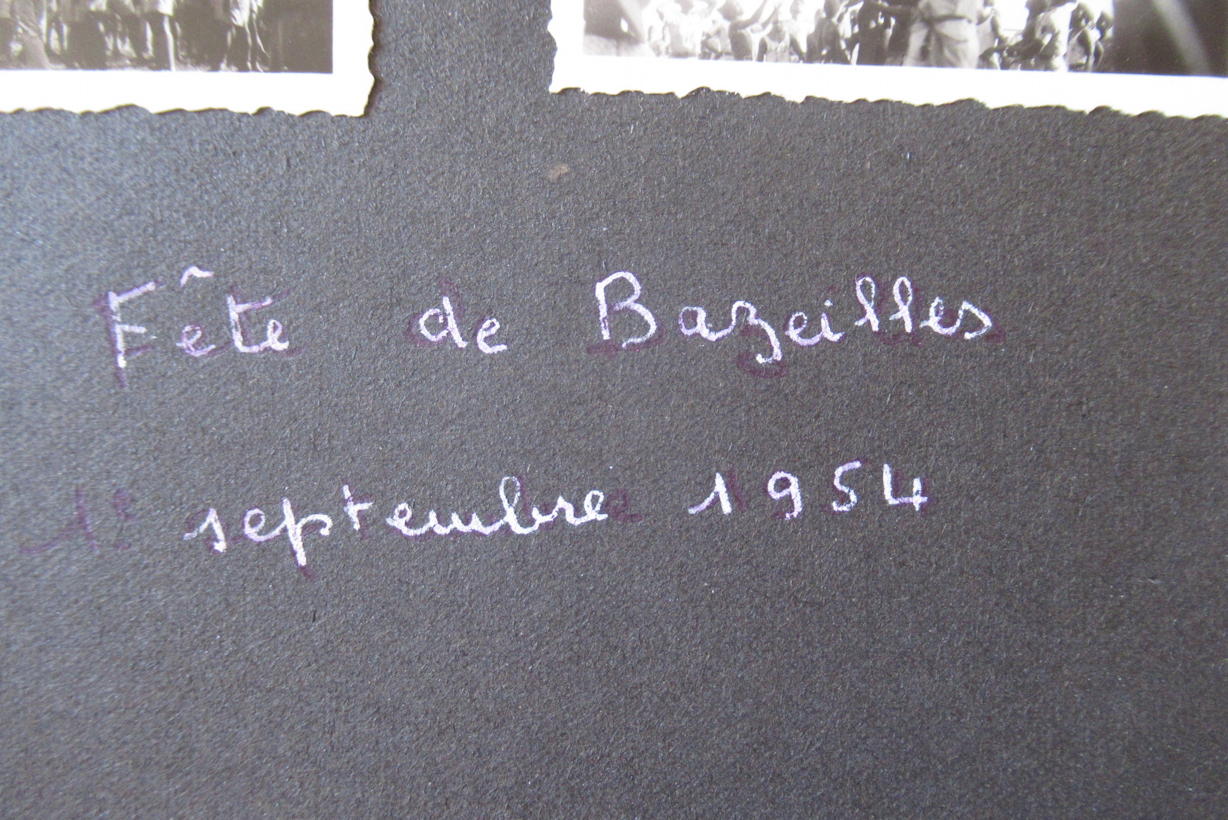 Fête de Bazeilles
1er septembre 1954